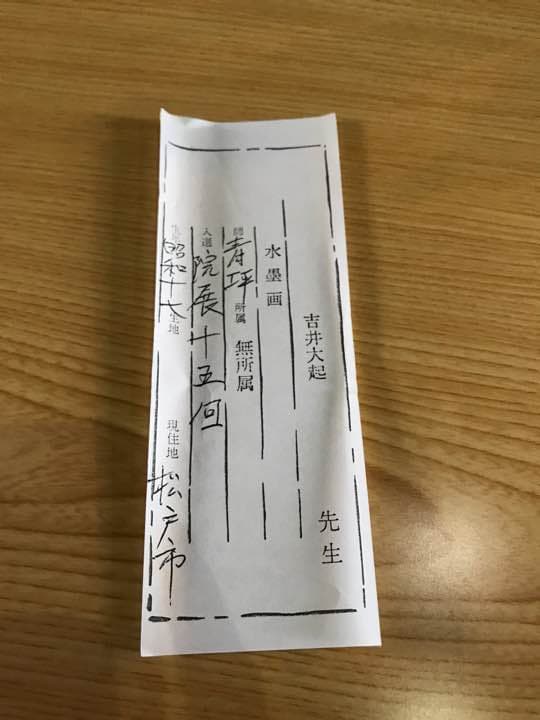 吉井大起 先生
水墨画
師 青坪 所属 無所属
入選 院展十五回
昭和十六 生地 現住地 松戸市